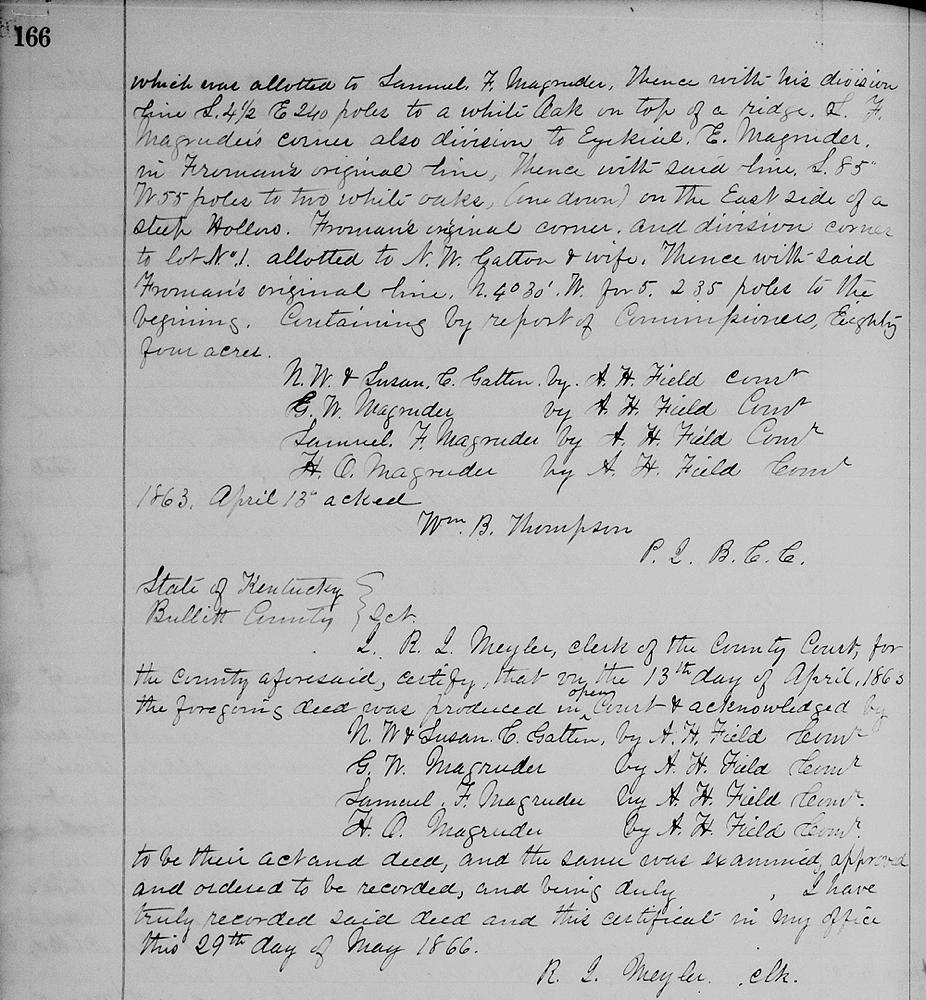 166
which was allotted to Samuel. F. Magruder, Thence with his division
line S. 4½ E 240 poles to a white Oak on top of a ridge. S. F.
Magruder's corner also division to Ezekial. E. Magruder.
in Froman's original line, Thence with said line. S. 85°
W 55 poles to two white oaks, (one down) on the East side of a
steep Hollow. Froman's original corner. and division corner
to lot No 1. allotted to N. W. Gatton & wife. Thence with said
Froman's original line. N. 4° 30'. W. for 5. 235 poles to the
begining. Containing by report of Commissioners, Eighty
four acres.
N. W. & Susan. C. Gatten. by. A. H. Field Comr
G. W. Magruder by A. H. Field Comr
Samuel. F. Magruder by A. H. Field Comr
H. O. Magruder by A. H. Field Comr
1863. April 13" acked
Wm. B. Thompson
P. J. B. C. C.
State of Kentucky
Bullitt County } Sct.
I. R. J. Meyler, clerk of the County Court, for
the county aforesaid, certify, that on the 13th day of April, 1863
the foregoing deed was produced in open Court & acknowledged by
N. W & Susan. C. Gatten, by A. H. Field Comr
G. W. Magruder by A. H. Field Comr
Samuel. F. Magruder by A. H. Field Comr.
H. O. Magruder by A. H. Field Comr.
to be their act and deed, and the same was examined, approved
and ordered to be recorded, and being duly , I have
truly recorded said deed and this certificate in my office
this 29th day of May 1866.
R. J. Meyler. clk.